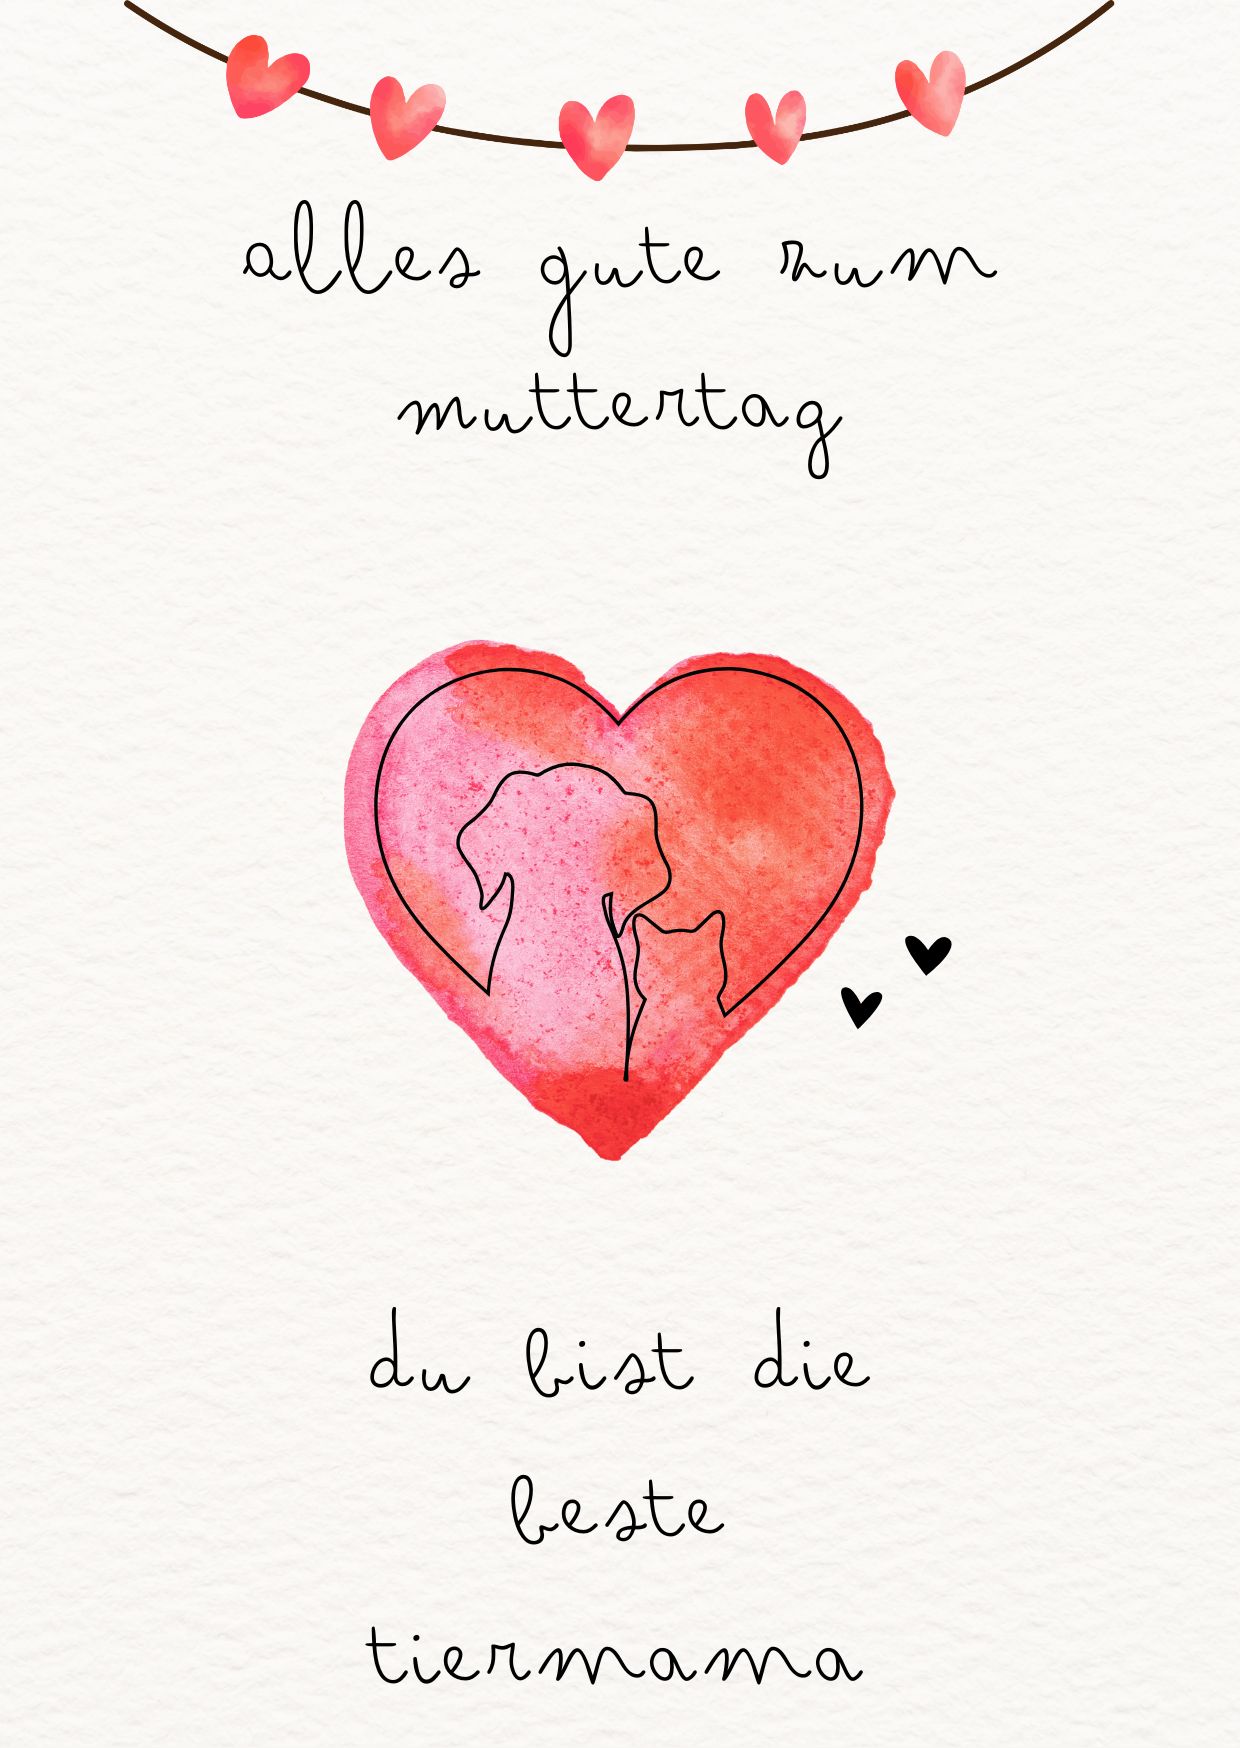 alles gute zum
muttertag
du bist die
beste
tiermama